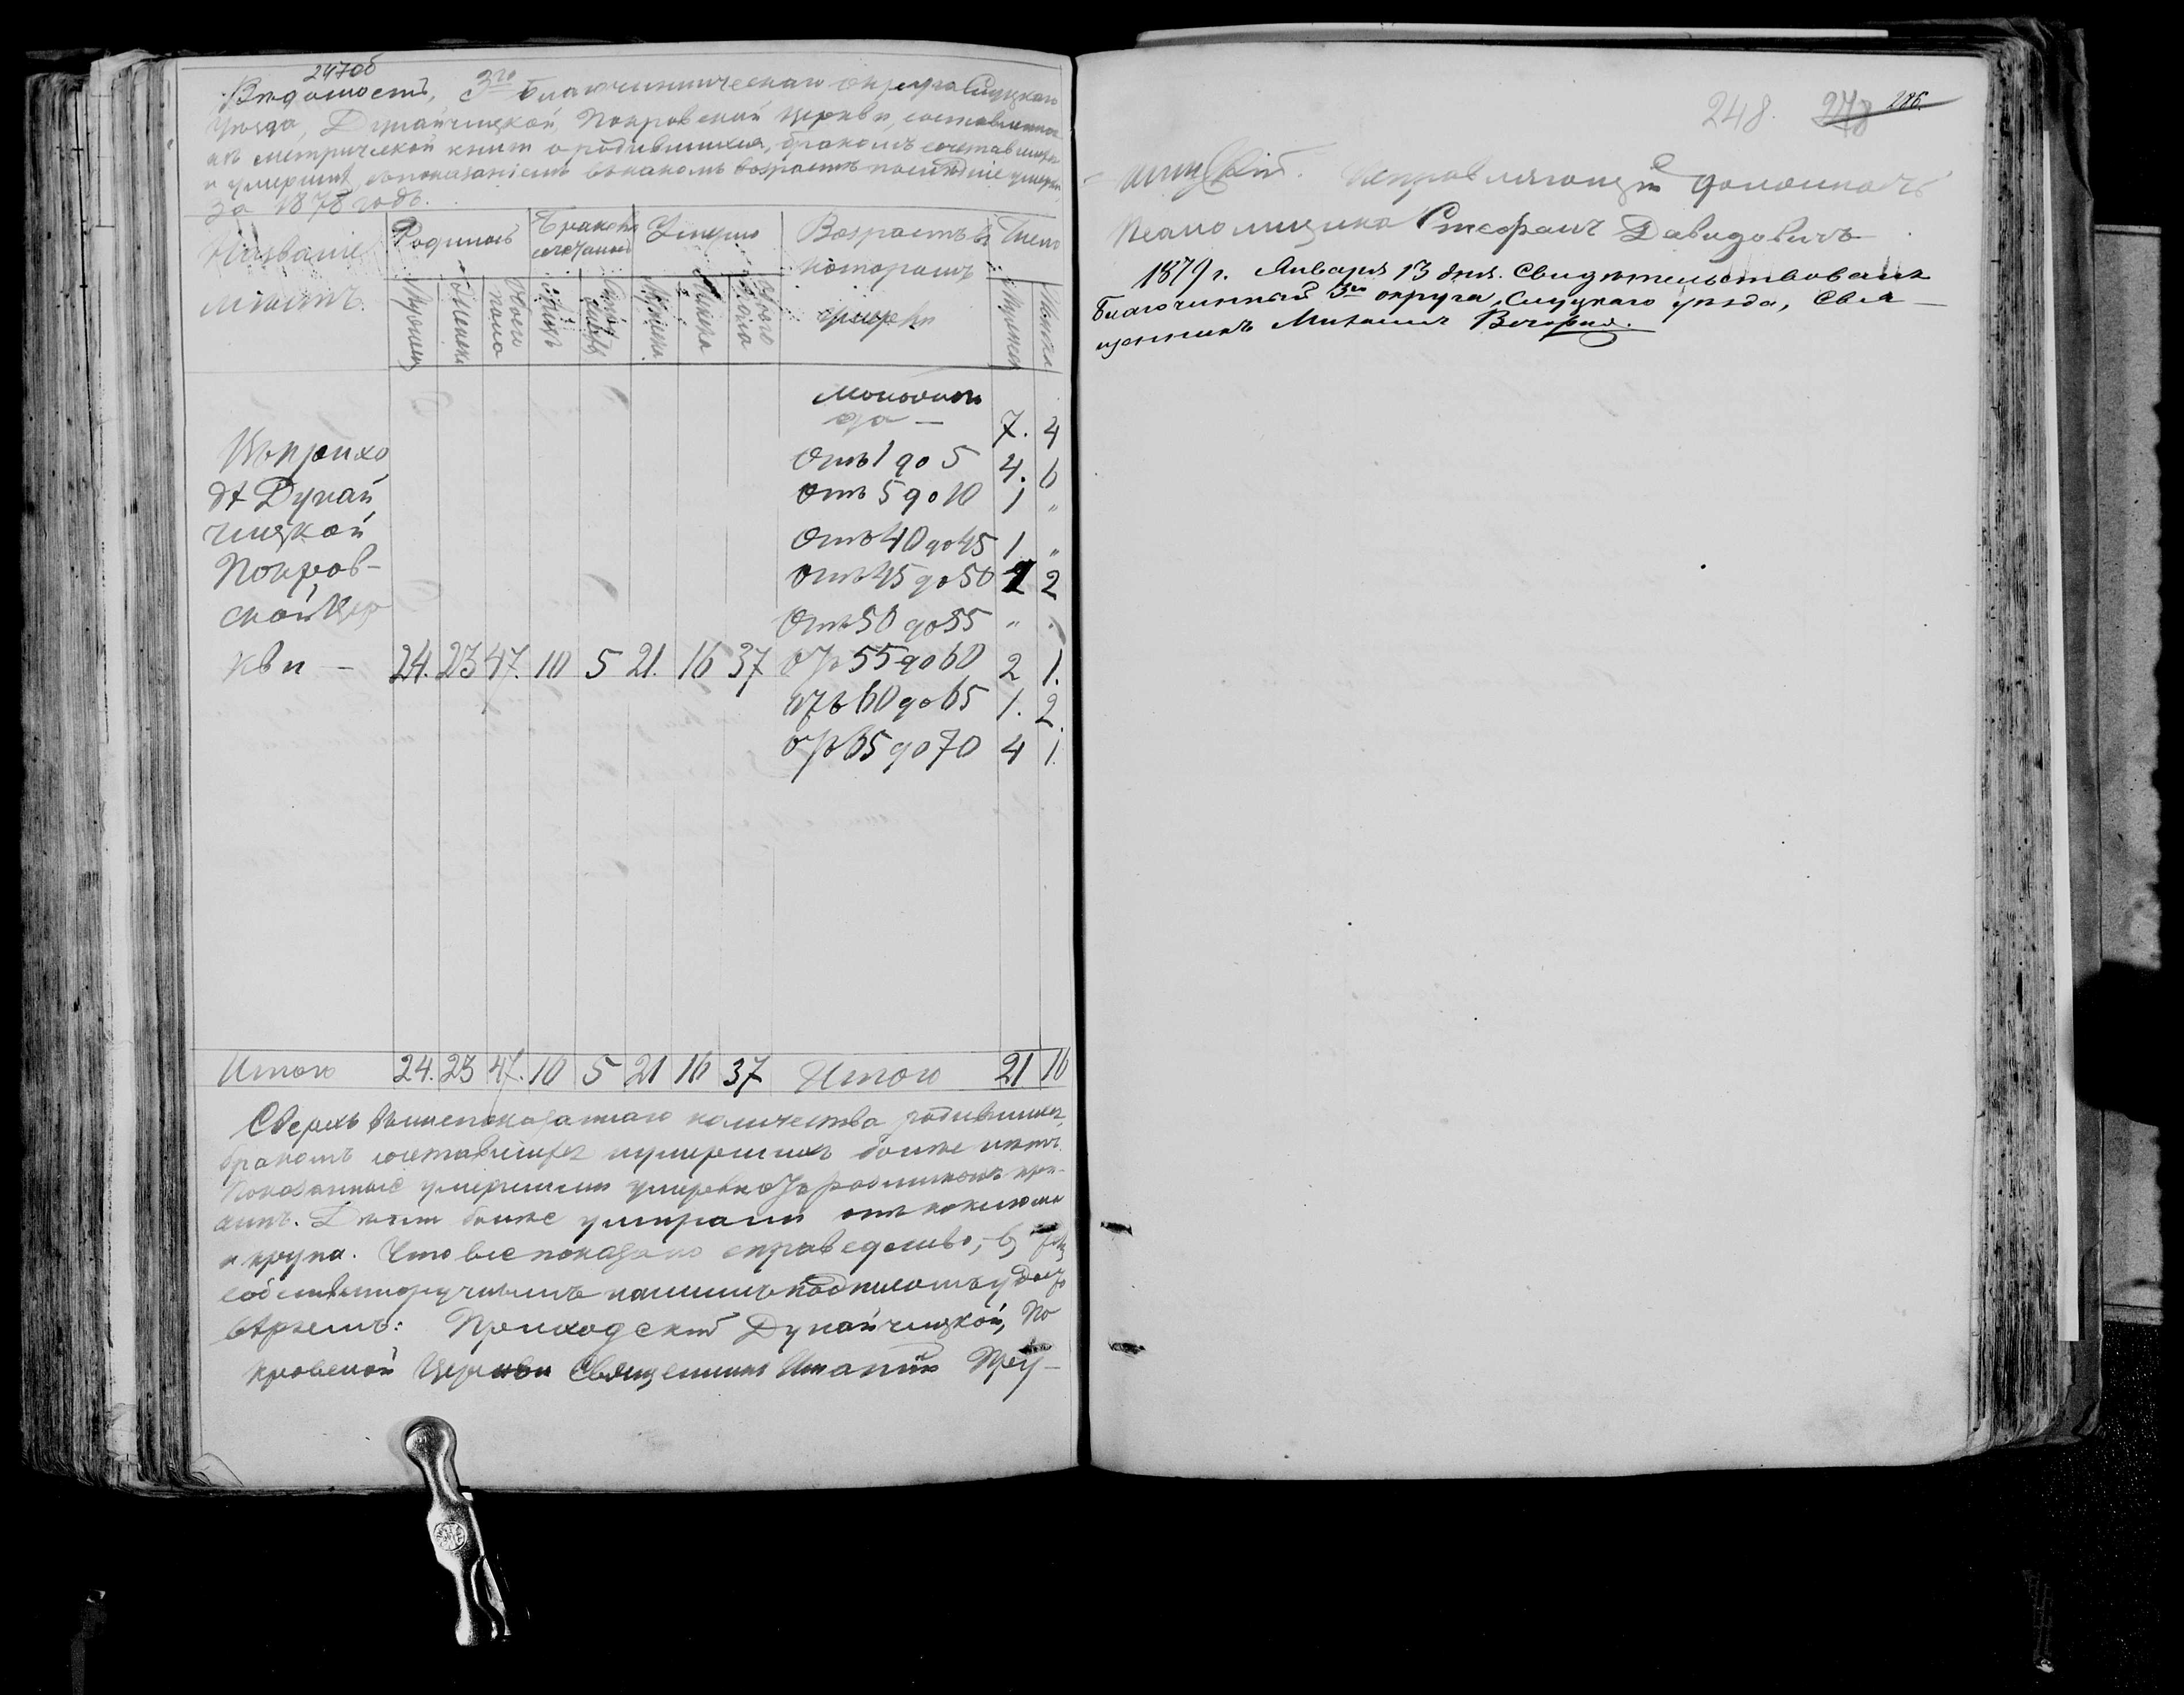 247об
Вѣдомость, 3го Благочинническаго округа Слуцкаго
уѣзда, Дунайчицкой Покровской Церкви, составленная
изъ метрической книги о родившихся, бракомъ сочетавшихся
и умершихъ, съ показаніемъ въ какомъ возрастѣ послѣдніе умерли
за 1878 годъ.
Названіе мѣстъ.
Родилось
Браковъ сочетано
Умерло
Возрастъ въ которомъ умерли
Число
Мужеска
Женска
Обоего пола
Мужеска
Женска
Обоего пола
Мужеска
Женска
Моложе года — 7. 4
Въ прихо
дѣ Дунай
чицкой
Покров-
ской Цер
кви — 24. 23 47. 10 5 21. 16 37
Отъ 1 до 5 4. 6
Отъ 5 до 10 1 "
Отъ 40 до 45 1 "
Отъ 45 до 50 1 2
Отъ 50 до 55 " "
отъ 55 до 60 2 1.
отъ 60 до 65 1. 2.
отъ 65 до 70 4 1.
Итого 24. 23 47. 10 5 21 16 37 Итого 21 16
Сверхъ вышепоказаннаго количества родившихся,
бракомъ сочетавшихся и умершихъ болѣе нѣтъ.
Показанные умершими умерли отъ
Дѣти болѣе умирали отъ коклюша
и крупа. Что все показано справедливо, въ
собственноручнымъ нашимъ подписомъ удосто
вѣряемъ: Приходскій Дунайчицкой, По
кровской Церкви Священникъ Игнатій
248. 278 286.
Исправляющій должность
Псаломщика Стефанъ Давидовичъ
1879 г. Января 13 дня. Свидѣтельствовалъ
Благочинный 3го округа, Слуцкаго уѣзда, Свя—
щенникъ Михаилъ